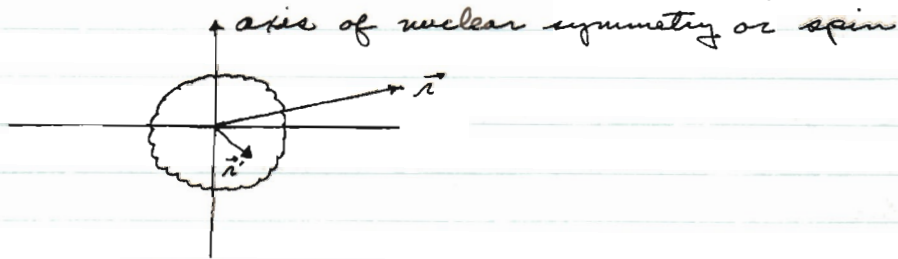 axis of nuclear symmetry or spin
r⃗
r⃗'